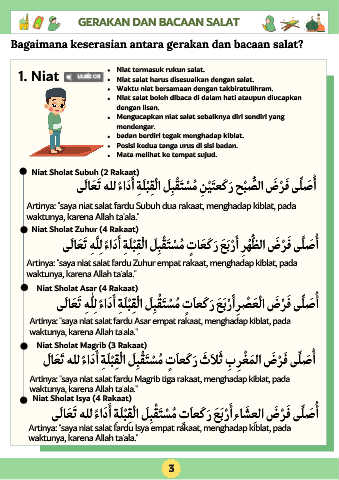 GERAKAN DAN BACAAN SALAT
Bagaimana keserasian antara gerakan dan bacaan salat?
1. Niat
• Niat termasuk rukun salat.
• Niat salat harus disesuaikan dengan salat.
• Waktu niat bersamaan dengan takbiratulihram.
• Niat salat boleh dibaca di dalam hati ataupun diucapkan
dengan lisan.
• Mengucapkan niat salat sebaiknya diri sendiri yang
mendengar.
• badan berdiri tegak menghadap kiblat.
• Posisi kedua tanga urus di sisi badan.
• Mata melihat ke tempat sujud.
● Niat Sholat Subuh (2 Rakaat)
أُصَلِّى فَرْضَ الصُّبْحِ رَكْعَتَيْنِ مُسْتَقْبِلَ الْقِبْلَةِ أَدَاءً لله تَعَالَى
Artinya: "saya niat salat fardu Subuh dua rakaat, menghadap kiblat, pada
waktunya, karena Allah ta'ala."
● Niat Sholat Zuhur (4 Rakaat)
أُصَلِّى فَرْضَ الظُّهْرِ أَرْبَعَ رَكَعَاتٍ مُسْتَقْبِلَ الْقِبْلَةِ أَدَاءً لِلَّهِ تَعَالَى
Artinya: "saya niat salat fardu Zuhur empat rakaat, menghadap kiblat, pada
waktunya, karena Allah ta'ala."
● Niat Sholat Asar (4 Rakaat)
أُصَلِّى فَرْضَ الْعَصْرِ أَرْبَعَ رَكَعَاتٍ مُسْتَقْبِلَ الْقِبْلَةِ أَدَاءً لِلَّهِ تَعَالَى
Artinya: "saya niat salat fardu Asar empat rakaat, menghadap kiblat, pada
waktunya, karena Allah ta'ala."
● Niat Sholat Magrib (3 Rakaat)
أُصَلِّى فَرْضَ المَغْرِبِ ثَلاَثَ رَكَعَاتٍ مُسْتَقْبِلَ الْقِبْلَةِ أَدَاءً لله تَعَالَ
Artinya: "saya niat salat fardu Magrib tiga rakaat, menghadap kiblat, pada
waktunya, karena Allah ta'ala."
● Niat Sholat Isya (4 Rakaat)
أُصَلِّى فَرْضَ العِشَاءِ أَرْبَعَ رَكَعَاتٍ مُسْتَقْبِلَ الْقِبْلَةِ أَدَاءً لله تَعَالَى
Artinya: "saya niat salat fardu Isya empat rakaat, menghadap kiblat, pada
waktunya, karena Allah ta'ala."
3